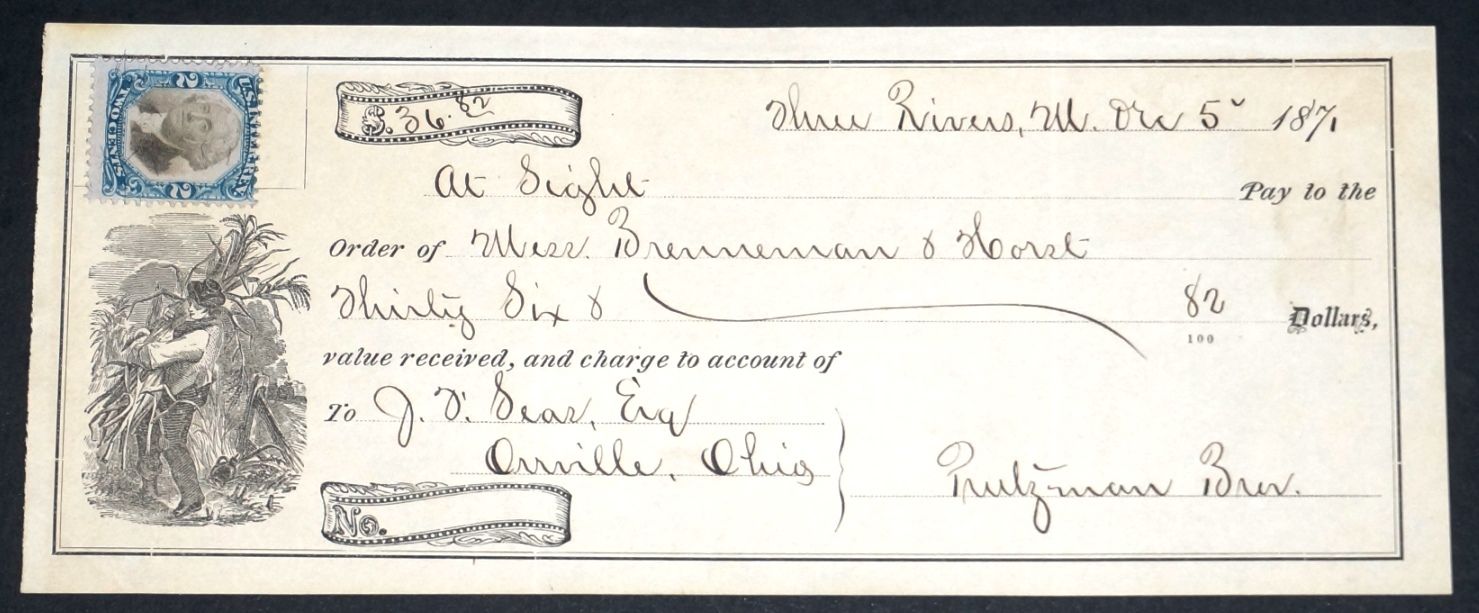 U.S. INTER. REV.
2 2
TWO CENTS
$. 36.82
Three Rivers, M. Dec 5" 1871
At Sight Pay to the
Order of Messr. Brenneman & Horst
Thirty Six & 82/100 Dollars,
value received, and charge to account of
To J. D. Sear, Esq
Orrville, Ohio
Prutzman Bros.
No.